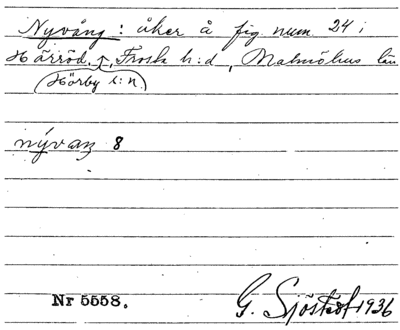 Nyvång: åker å fig. num 24 i
Härröd, ↑, Frosta h:d, Malmöhus län
(Hörby s:n)
nývaŋ 8
Nr 5558. G. Sjöstedt 1936